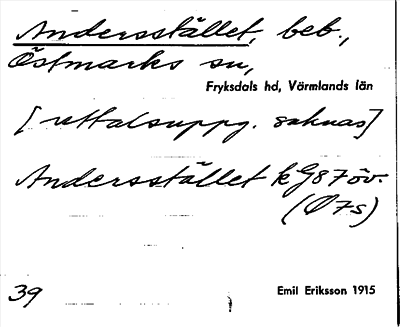 Andersstället, beb.,
Östmarks sn,
Fryksdals hd, Värmlands län
[uttalsuppg. saknas]
Andersstället k G87 öv.
(Ø7s)
39
Emil Eriksson 1915